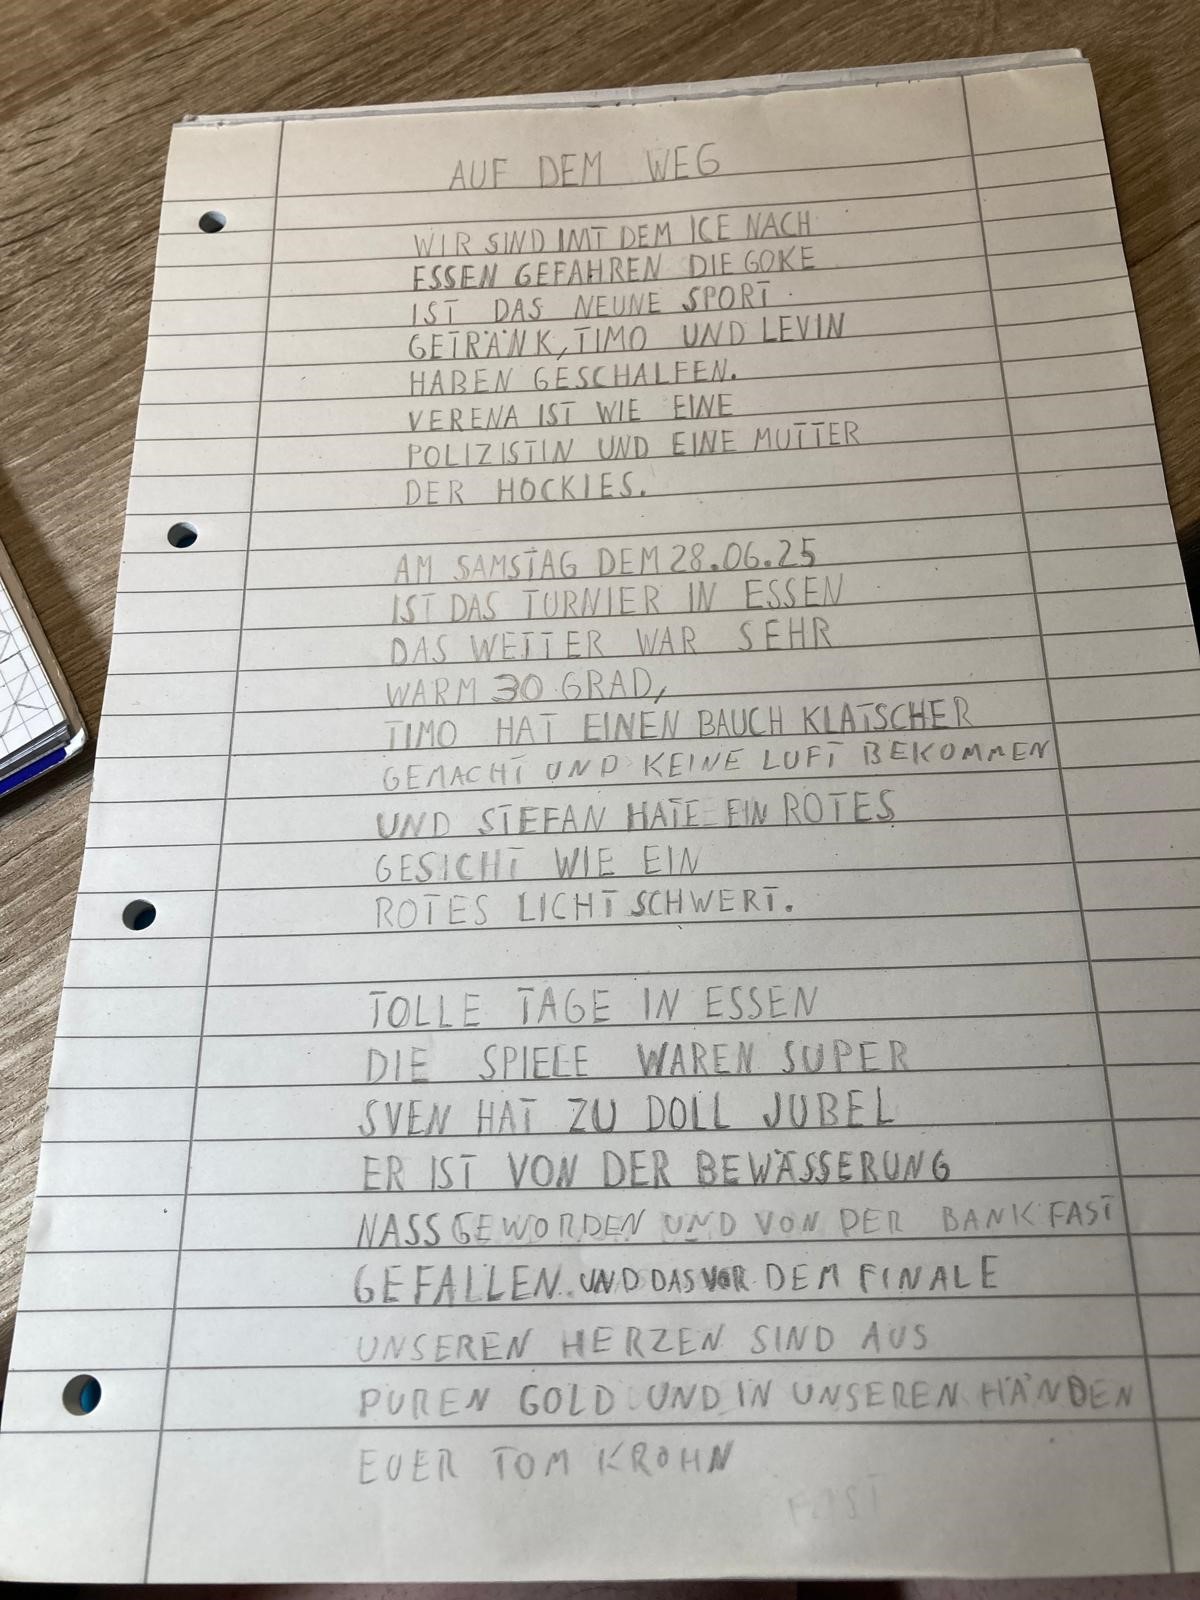 AUF DEM WEG
WIR SIND IMT DEM ICE NACH
ESSEN GEFAHREN DIE GOKE
IST DAS NEUNE SPORT
GETRÄNK, TIMO UND LEVIN
HABEN GESCHALFEN.
VERENA IST WIE EINE
POLIZISTIN UND EINE MUTTER
DER HOCKIES.
AM SAMSTAG DEM 28.06.25
IST DAS TURNIER IN ESSEN
DAS WETTER WAR SEHR
WARM 30 GRAD,
TIMO HAT EINEN BAUCH KLATSCHER
GEMACHT UND KEINE LUFT BEKOMMEN
UND STEFAN HATE EIN ROTES
GESICHT WIE EIN
ROTES LICHT SCHWERT.
TOLLE TAGE IN ESSEN
DIE SPIELE WAREN SUPER
SVEN HAT ZU DOLL JUBEL
ER IST VON DER BEWÄSSERUNG
NASS GEWORDEN UND VON DER BANK FAST
GEFALLEN. UND DAS VOR DEM FINALE
UNSEREN HERZEN SIND AUS
PUREN GOLD UND IN UNSEREN HÄNDEN
EUER TOM KROHN
FAST